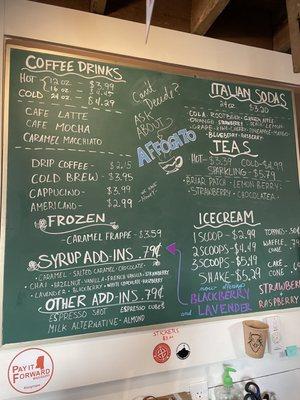 COFFEE DRINKS
HOT 12oz - $3.99
16oz - $4.45
COLD 24oz - $4.29
CAFE LATTE
CAFE MOCHA
CARAMEL MACCHIATO
DRIP COFFEE - $2.15
COLD BREW - $3.95
CAPPUCINO - $3.99
AMERICANO - $2.99
FROZEN
-CARAMEL FRAPPE - $3.59
SYRUP ADD-INS .79¢
-CARAMEL - SALTED CARAMEL - CHOCOLATE-
CHAI - HAZELNUT - VANILLA - FRENCH VANILLA - STRAWBERRY
-LAVENDER - BLACKBERRY - WHITE CHOCOLATE - RASPBERRY
OTHER ADD-INS .79¢
ESPRESSO SHOT
ESPRESSO CUBES
MILK ALTERNATIVE - ALMOND
Can't
Decide?
ASK
ABOUT
AFFOGATO
ITALIAN SODAS
24oz $3.50
COLA
STRAWBERRY
BLUEBERRY - RASPBERRY
TEAS
HOT - $3.39 COLD - $4.99
SPARKLING - $5.79
BRIAR PATCH - LEMON BERRY -
-STRAWBERRY - CHOCOLATEA -
ICECREAM
1 SCOOP - $2.99
2 SCOOPS - $4.49
3 SCOOPS - $5.49
SHAKE - $5.29
TOPPINGS
WAFFLE
CONE
CAKE
CONE
now offering
BLACKBERRY
and LAVENDER
STRAWBERRY
RASPBERRY
STICKERS
PAY IT
FORWARD